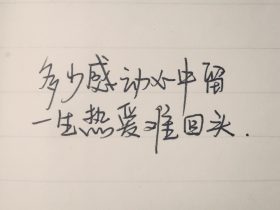 多少感动心中留
一生热爱难回头.